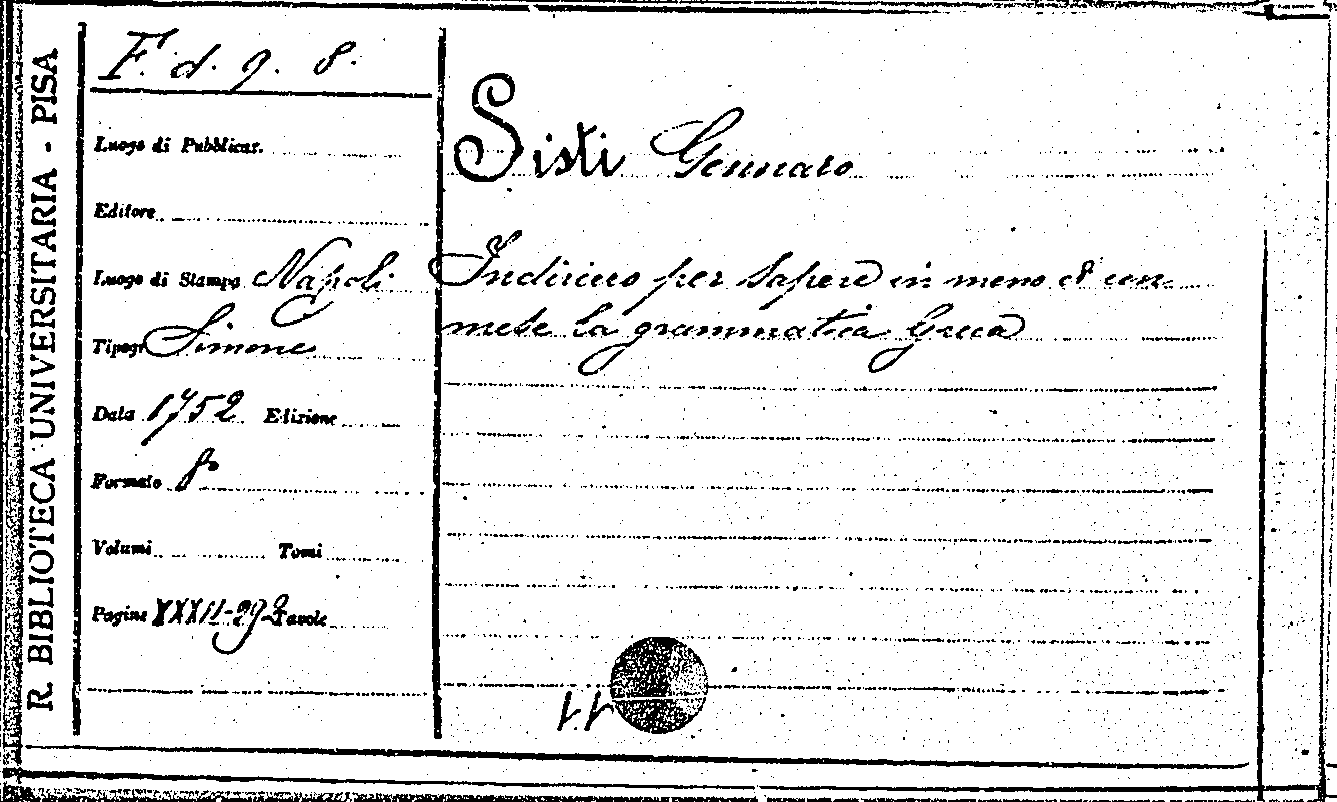 R. BIBLIOTECA UNIVERSITARIA - PISA
F. d. 9. 8.
Luogo di Pubblicaz.
Editore
Luogo di Stampa Napoli
Tipogr. Simone
Data 1752 Edizione
Formato 8º
Volumi Tomi
Pagine XXXII-292 Tavole
Sisti Gennaro
Indirizzo per sapere in meno d' un
mese la grammatica Greca